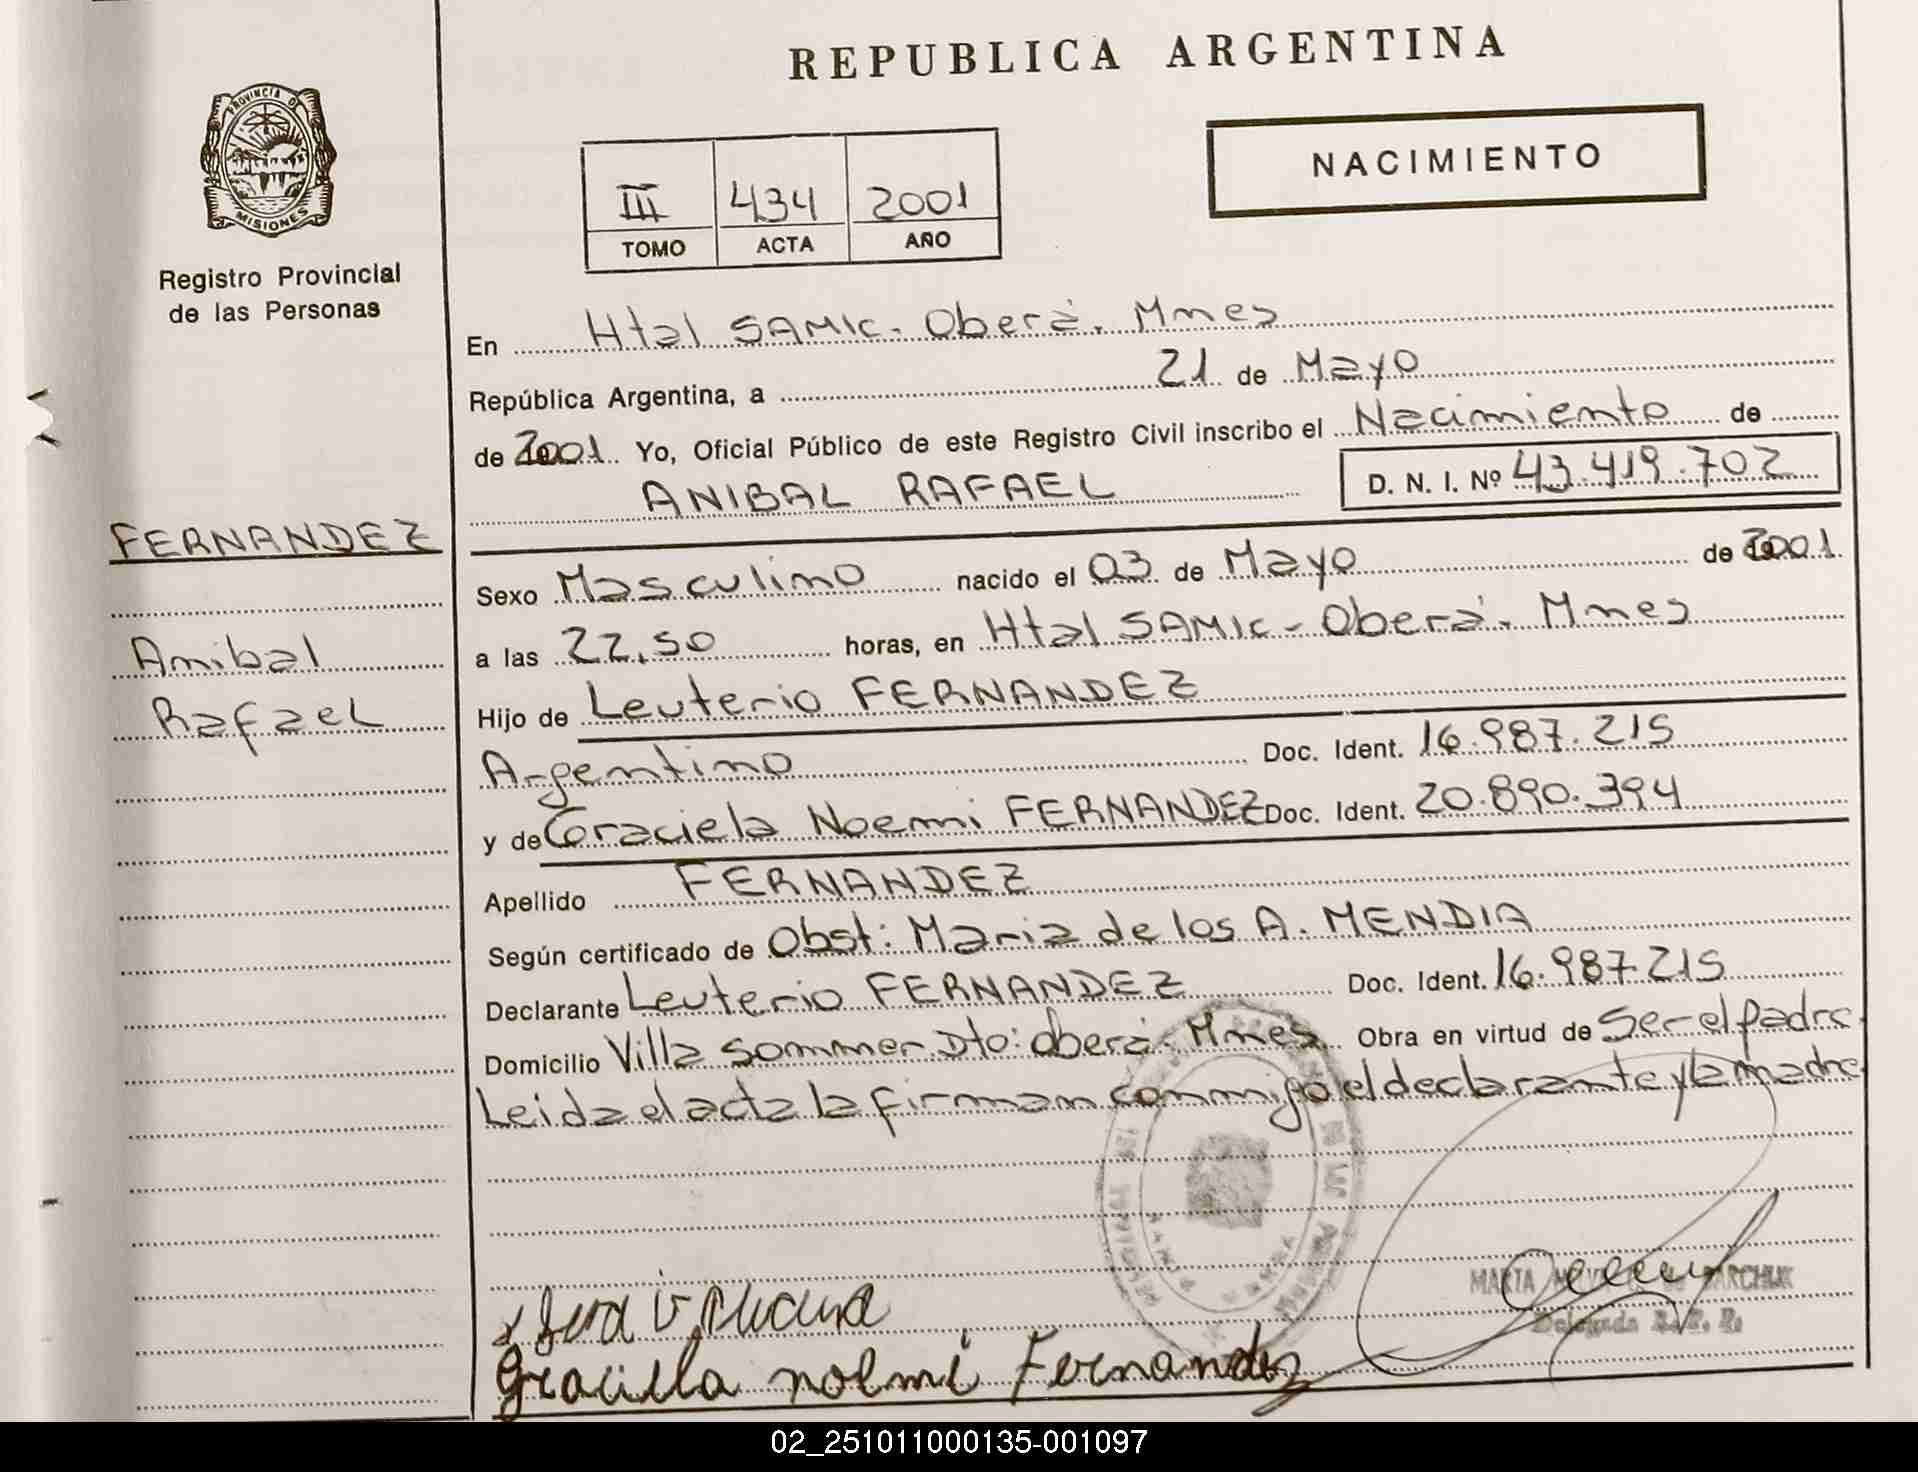 REPUBLICA ARGENTINA
PROVINCIA DE
MISIONES
Registro Provincial
de las Personas
NACIMIENTO
III 434 2001
TOMO ACTA AÑO
En Htal SAMIC - Oberá. Mnes
República Argentina, a 21 de Mayo
de 2001 Yo, Oficial Público de este Registro Civil inscribo el Nacimiento de
ANIBAL RAFAEL D. N. I. Nº 43.419.702
FERNANDEZ
Anibal
Rafael
Sexo Masculino nacido el 03 de Mayo de 2001
a las 22,50 horas, en Htal SAMIC - Oberá. Mnes
Hijo de Leuterio FERNANDEZ
Argentino Doc. Ident. 16.987.215
y de Graciela Noemi FERNANDEZ Doc. Ident. 20.890.394
Apellido FERNANDEZ
Según certificado de Obst: Maria de los A. MENDIA
Declarante Leuterio FERNANDEZ Doc. Ident. 16.987.215
Domicilio Villa Sommer. Dto: Oberá. Mnes Obra en virtud de Ser el padre.
Leida el acta la firman conmigo el declarante y la madre
MARTA
Delegada R. P. P.
Graciela noemi Fernandez
02_251011000135-001097